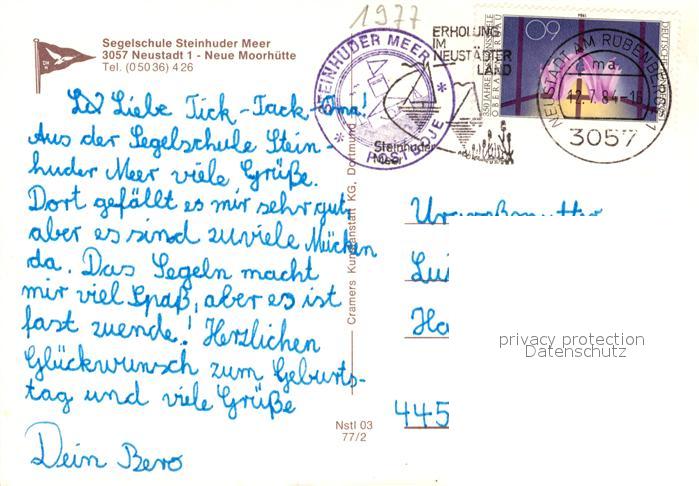 1977
Segelschule Steinhuder Meer
3057 Neustadt 1 - Neue Moorhütte
Tel. (0 50 36) 4 26
Liebe Tick-Tack-Oma!
Aus der Segelschule Stein-
huder Meer viele Grüße.
Dort gefällt es mir sehr gut,
aber es sind zuviele Mücken
da. Das Segeln macht
mir viel Spaß, aber es ist
fast zuende! Herzlichen
Glückwunsch zum Geburts-
tag und viele Grüße
Dein Bero
Cramers Kunstanstalt KG, Dortmund
Nstl 03
77/2
STEINHUDER MEER
POSTBOJE
ERHOLUNG
IM
NEUSTÄDTER
LAND
Steinhuder
Meer
60
350 JAHRE
OBERAMMERGAU
DEUTSCHE BUNDESPOST
NEUSTADT AM RÜBENBERGE 1
ma
12.7.84-16
3057
Urgroßmutter
Lui
Ha
445
privacy protection
Datenschutz